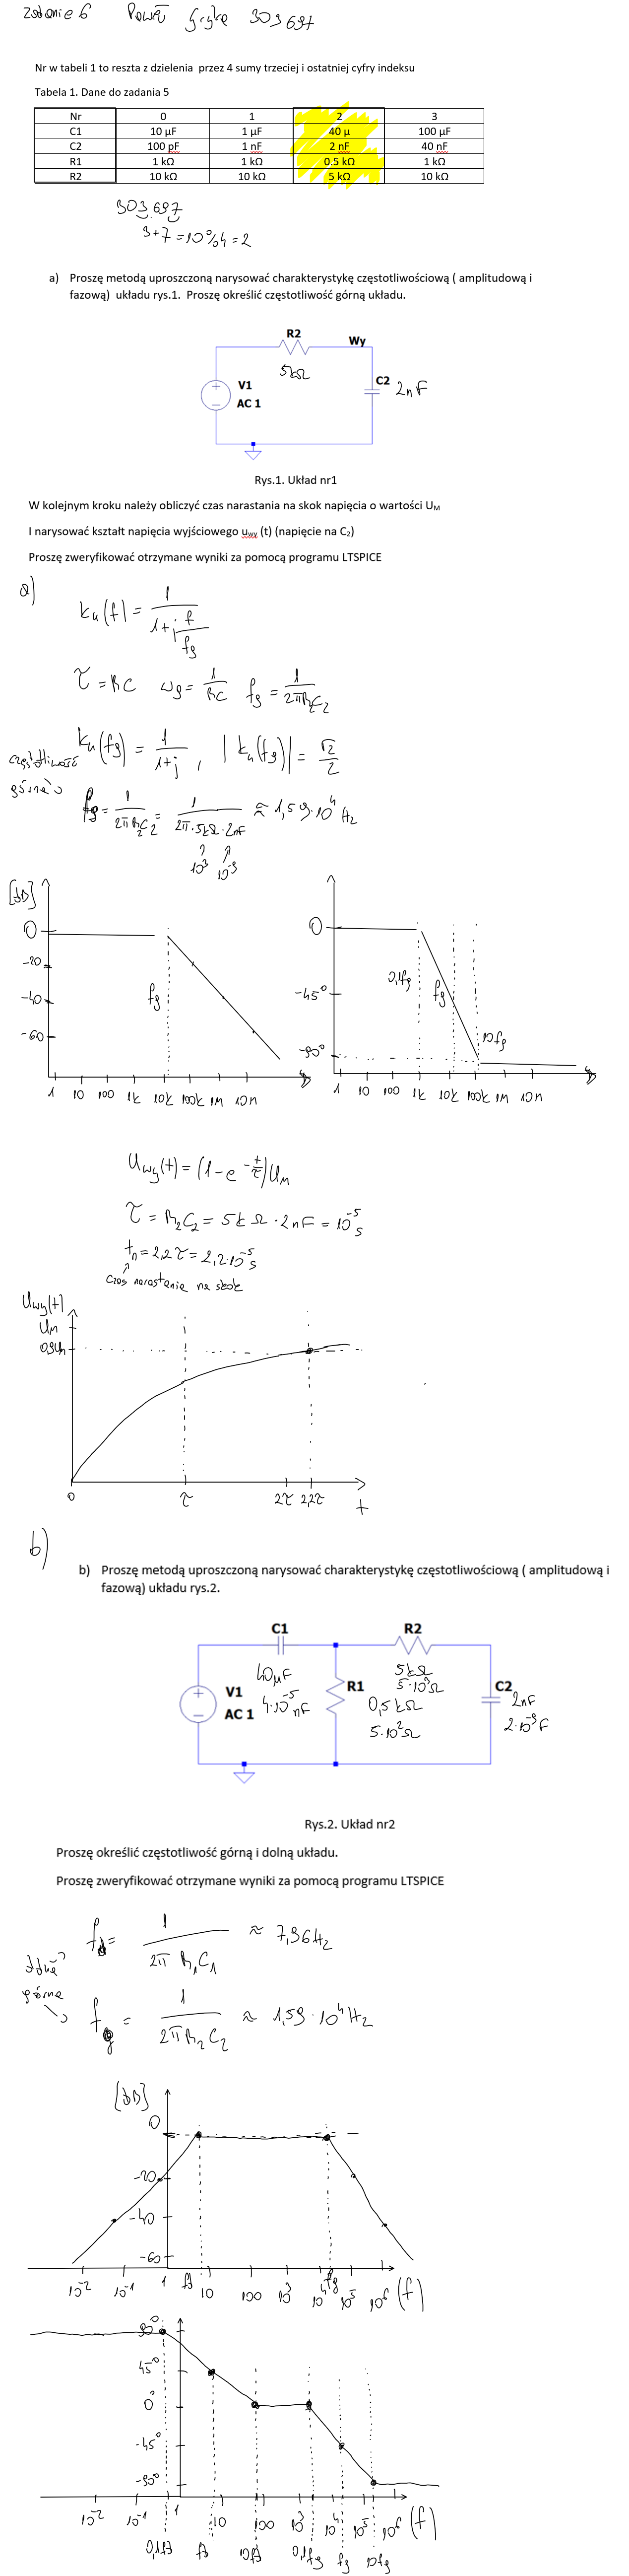 Zadanie 6 Paweł 303697
Nr w tabeli 1 to reszta z dzielenia przez 4 sumy trzeciej i ostatniej cyfry indeksu
Tabela 1. Dane do zadania 5
Nr 0 1 2 3
C1 10 µF 1 µF 40 µ 100 µF
C2 100 pF 1 nF 2 nF 40 nF
R1 1 kΩ 1 kΩ 0.5 kΩ 1 kΩ
R2 10 kΩ 10 kΩ 5 kΩ 10 kΩ
303.697
3+7=10%4=2
a) Proszę metodą uproszczoną narysować charakterystykę częstotliwościową ( amplitudową i
fazową) układu rys.1. Proszę określić częstotliwość górną układu.
R2
Wy
5kΩ
C2 2nF
V1
AC 1
Rys.1. Układ nr1
W kolejnym kroku należy obliczyć czas narastania na skok napięcia o wartości UM
I narysować kształt napięcia wyjściowego uwy (t) (napięcie na C2)
Proszę zweryfikować otrzymane wyniki za pomocą programu LTSPICE
a)
ku(f) = 1/(1+j f/fg)
τ = RC ωg = 1/RC fg = 1/(2πR2C2)
ku(fg) = 1/(1+j), |ku(fg)| = √2/2
częstotliwość
górna
fg = 1/(2πR2C2) = 1/(2π·5kΩ·2nF) ≈ 1,59·10^4 Hz
10^3 10^-9
[dB]
0
-20
-40
-60
fg
1 10 100 1k 10k 100k 1M 10M
0
-45°
-90°
0,1fg fg 10fg
1 10 100 1k 10k 100k 1M 10M
Uwy(t) = (1-e^-t/τ)UM
τ = R2C2 = 5kΩ·2nF = 10^-5 s
tn = 2,2τ = 2,2·10^-5 s
czas narastania na skok
Uwy(t)
UM
0,9UM
0 τ 2τ 2,2τ t
b)
b) Proszę metodą uproszczoną narysować charakterystykę częstotliwościową ( amplitudową i
fazową) układu rys.2.
C1 R2
40µF 5kΩ
4·10^-5 nF 5·10^3Ω
V1
AC 1
R1
0,5kΩ
5·10^2Ω
C2
2nF
2·10^-9F
Rys.2. Układ nr2
Proszę określić częstotliwość górną i dolną układu.
Proszę zweryfikować otrzymane wyniki za pomocą programu LTSPICE
dolna
fd = 1/(2πR1C1) ≈ 7,96Hz
górna
fg = 1/(2πR2C2) ≈ 1,59·10^4 Hz
[dB]
0
-20
-40
-60
10^-2 10^-1 1 fd 10 100 10^3 10^4 fg 10^5 10^6 (f)
90°
45°
0°
-45°
-90°
10^-2 10^-1 1 10 100 10^3 10^4 10^5 10^6 (f)
0,1fd fd 10fd 0,1fg fg 10fg